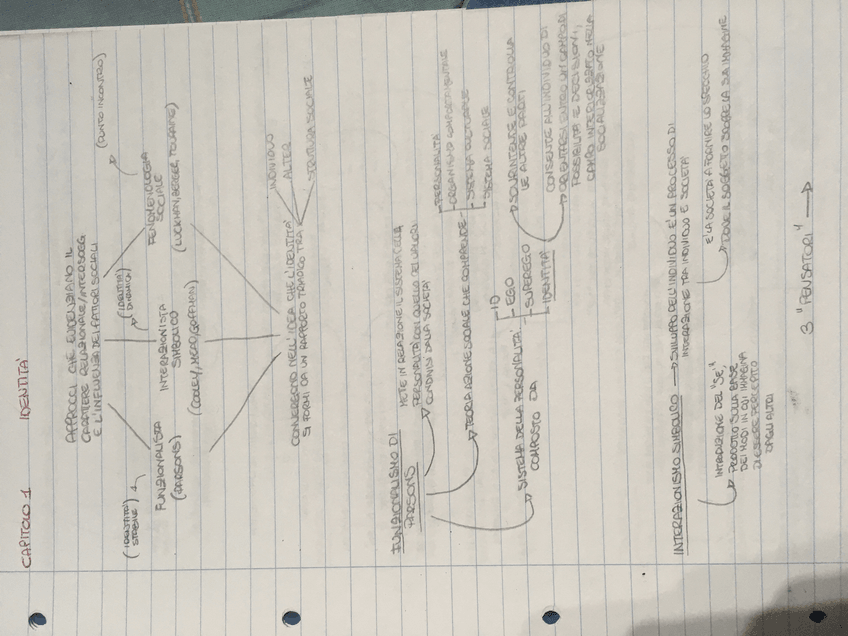 CAPITOLO 1 IDENTITÀ
APPROCCI CHE EVIDENZIANO IL
CARATTERE RELAZIONALE/INTERSOGG.
E L'INFLUENZA DEI FATTORI SOCIALI
(IDENTITÀ STABILE)
FUNZIONALISTA
(PARSONS)
(IDENTITÀ DINAMICA)
INTERAZIONISTA
SIMBOLICO
(COOLEY, MEAD, GOFFMAN)
(PUNTO INCONTRO)
FENOMENOLOGIA
SOCIALE
(LUCKMAN, BERGER, TOURAINE)
CONVERGONO NELL'IDEA CHE L'IDENTITÀ
SI FORMI DA UN RAPPORTO TRIADICO TRA
INDIVIDUO
ALTER
STRUTTURA SOCIALE
FUNZIONALISMO DI
PARSONS
METTE IN RELAZIONE IL SISTEMA DELLA
PERSONALITÀ CON QUELLO DEI VALORI
CONDIVISI DALLA SOCIETÀ
TEORIA AZIONE SOCIALE CHE COMPRENDE
PERSONALITÀ
ORGANISMO COMPORTAMENTALE
SISTEMA CULTURALE
SISTEMA SOCIALE
SISTEMA DELLA PERSONALITÀ
COMPOSTO DA
ID
EGO
SUPEREGO
IDENTITÀ
SOVRINTENDE E CONTROLLA
LE ALTRE PARTI
CONSENTE ALL'INDIVIDUO DI
ORIENTARSI ENTRO UN CAMPO DI
POSSIBILITÀ E DECISIONI,
CAMPO INTERIORIZZATO NELLA
SOCIALIZZAZIONE
INTERAZIONISMO SIMBOLICO → SVILUPPO DELL'INDIVIDUO È UN PROCESSO DI
INTERAZIONE TRA INDIVIDUO E SOCIETÀ
INTRODUZIONE DEL "SÉ",
PRODOTTO SULLA BASE
DEI MODI IN CUI IMMAGINA
DI ESSERE PERCEPITO
DAGLI ALTRI
È LA SOCIETÀ A FORNIRE LO SPECCHIO
DOVE IL SOGGETTO SCOPRE LA SUA IMMAGINE
3 "PENSATORI" →